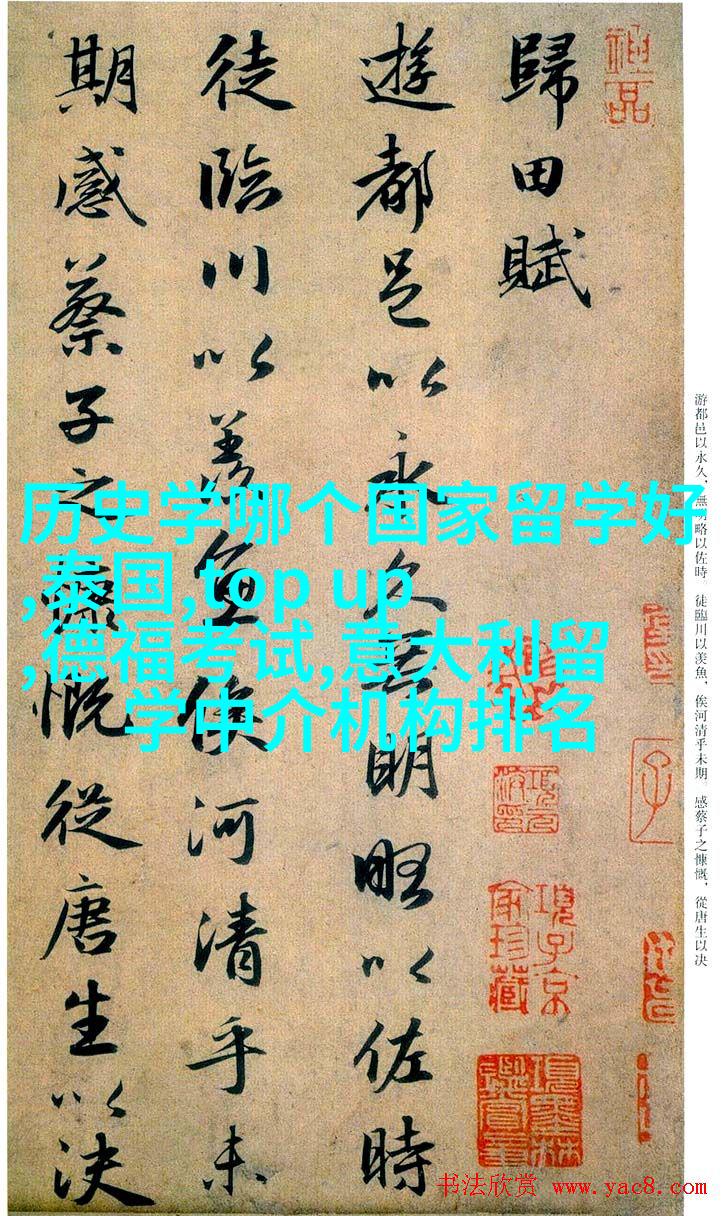 歸田賦
遊都邑以永久無明略以佐時
徒臨川以羨魚俟河清乎未
期感蔡子之慷慨從唐生以決
历史学哪个国家留学好
,泰国,top up
,德福考试,意大利留
学中介机构排名
游都邑以永久，無明略以佐時。徒臨川以羨魚，俟河清乎未期。感蔡子之慷慨，從唐生以决
項子京
家珍藏
書法欣赏 www.yac8.com